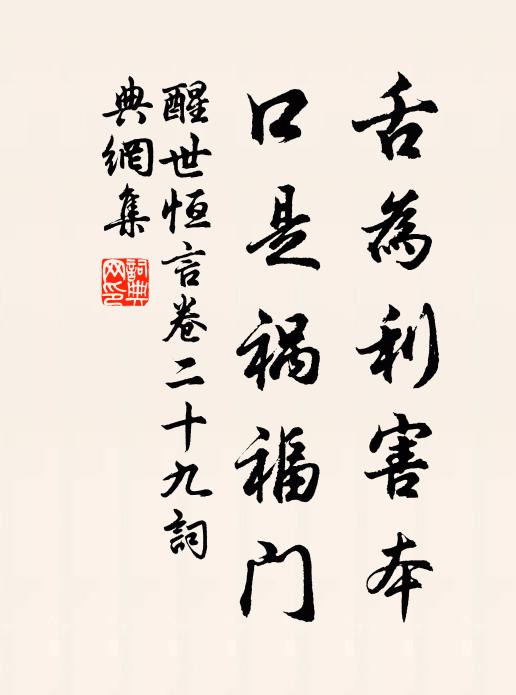 舌為利害本
口是禍福門
醒世恒言卷二十九詞
典網集
詞典
网印